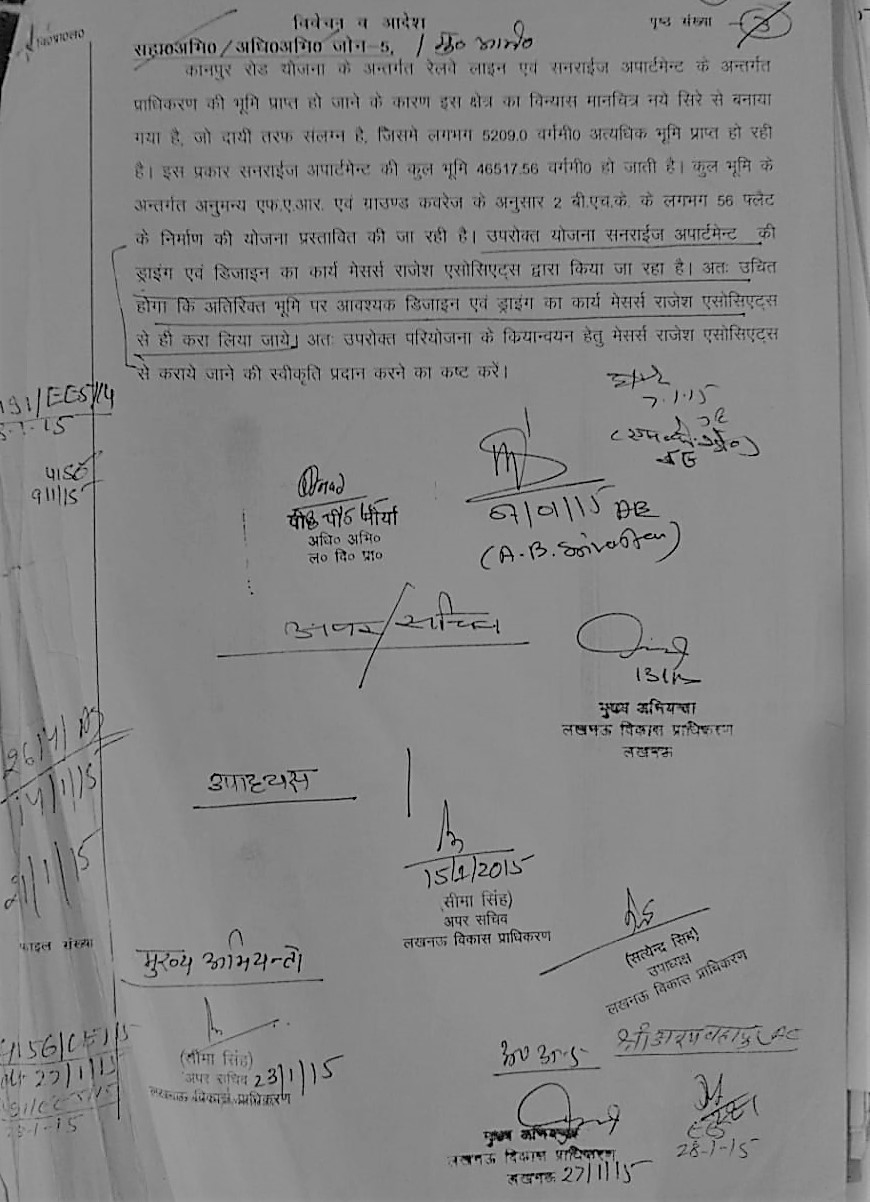 विवेचन व आदेश
पृष्ठ संख्या 3
सहा०अभि०/अधि०अभि० जोन-5, / मु० अभि०
कानपुर रोड योजना के अन्तर्गत रेलवे लाइन एवं सनराईज अपार्टमेन्ट के अन्तर्गत
प्राधिकरण की भूमि प्राप्त हो जाने के कारण इस क्षेत्र का विन्यास मानचित्र नये सिरे से बनाया
गया है, जो दायी तरफ संलग्न है, जिसमे लगभग 5209.0 वर्गमी० अत्यधिक भूमि प्राप्त हो रही
है। इस प्रकार सनराईज अपार्टमेन्ट की कुल भूमि 46517.56 वर्गमी० हो जाती है। कुल भूमि के
अन्तर्गत अनुमन्य एफ.ए.आर. एवं ग्राउण्ड कवरेज के अनुसार 2 बी.एच.के. के लगभग 56 फ्लैट
के निर्माण की योजना प्रस्तावित की जा रही है। उपरोक्त योजना सनराईज अपार्टमेन्ट की
ड्राइंग एवं डिजाइन का कार्य मेसर्स राजेश एसोसिएट्स द्वारा किया जा रहा है। अतः उचित
होगा कि अतिरिक्त भूमि पर आवश्यक डिजाइन एवं ड्राइंग का कार्य मेसर्स राजेश एसोसिएट्स
से ही करा लिया जाये। अतः उपरोक्त परियोजना के कियान्वयन हेतु मेसर्स राजेश एसोसिएट्स
से कराये जाने की स्वीकृति प्रदान करने का कष्ट करें।
7.1.15
191/EE5/14
5-1-15
9/1/15
पी० पी० मौर्या
अधि० अभि०
ल० वि० प्रा०
07/01/15 AE
(A.B. Srivastava)
अपर सचिव
मुख्य अभियन्ता
लखनऊ विकास प्राधिकरण
लखनऊ
14/1/15
उपाध्यक्ष
15/1/2015
(सीमा सिंह)
अपर सचिव
लखनऊ विकास प्राधिकरण
21/1/15
(सत्येन्द्र सिंह)
उपाध्यक्ष
लखनऊ विकास प्राधिकरण
फाइल संख्या
मुख्य अभियन्ता
(सीमा सिंह)
अपर सचिव 23/1/15
लखनऊ विकास प्राधिकरण
27/1/15
28-1-15
मुख्य अभियन्ता
लखनऊ विकास प्राधिकरण
लखनऊ 27/1/15
28-1-15